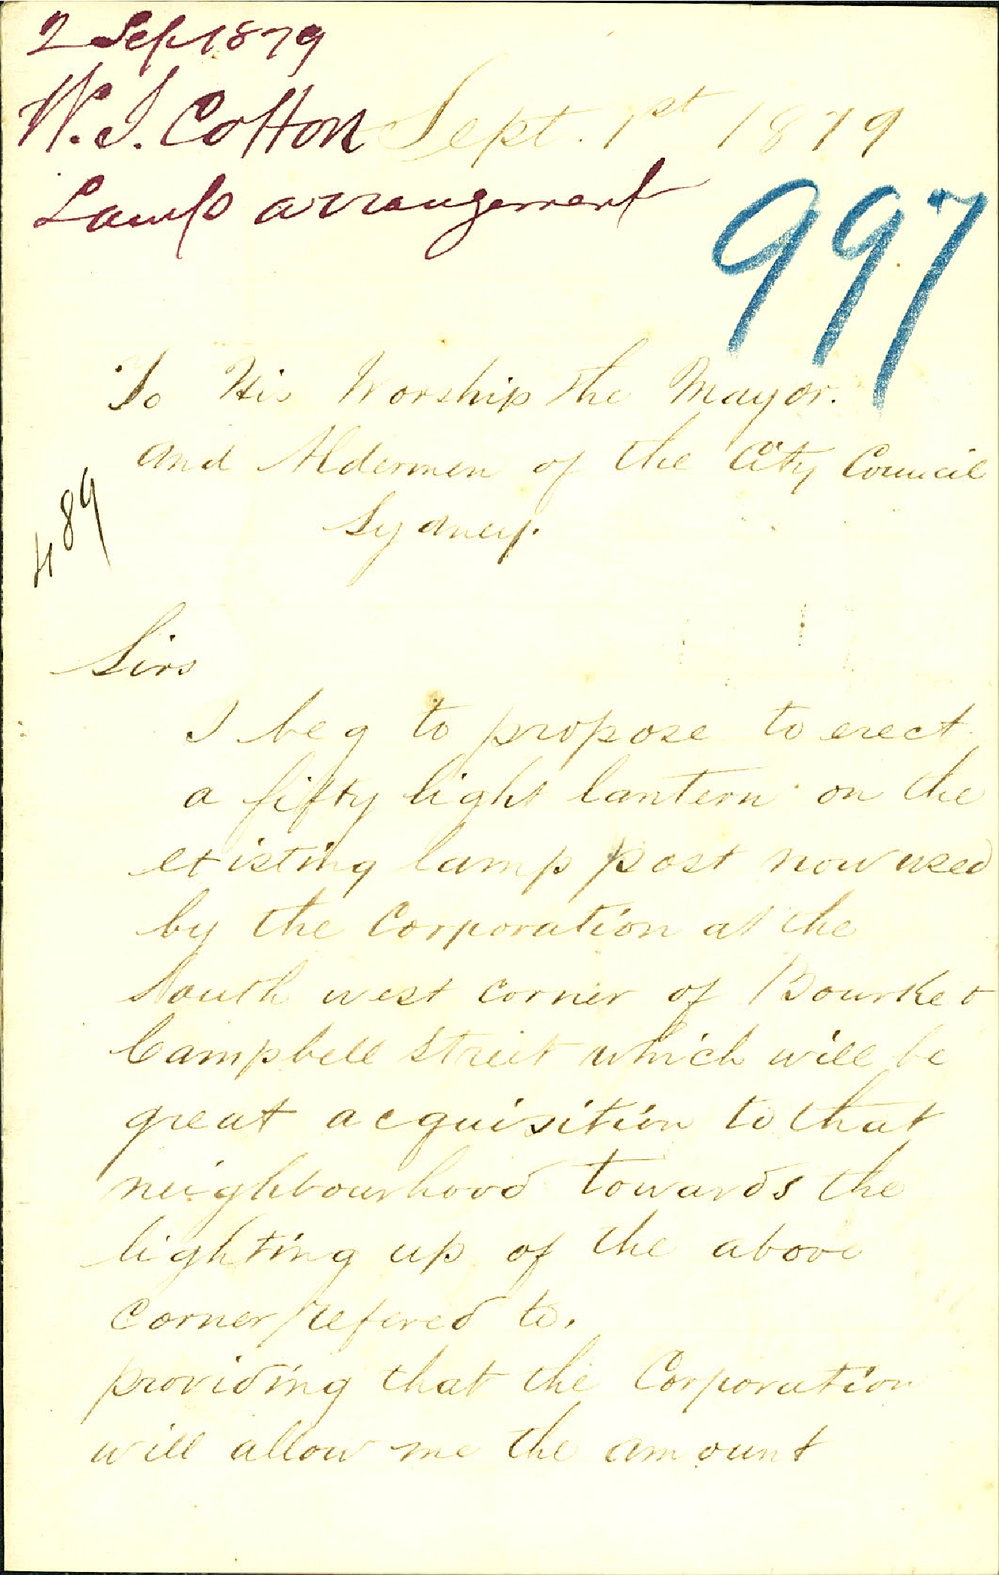 2 Sep 1879
W. J. Cotton
Sept. 1st 1879
Lamp arrangement
997
To His Worship the Mayor.
and Aldermen of the City Council
Sydney.
489
Sirs
I beg to propose to erect
a fifty light lantern on the
existing lamp post now used
by the Corporation at the
South west corner of Bourke &
Campbell Street which will be
great acquisition to that
neighbourhood towards the
lighting up of the above
corner refered to.
providing that the Corporation
will allow me the amount